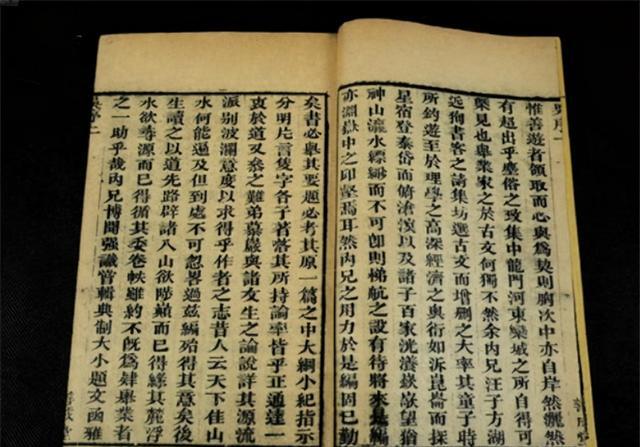 吳序一
惟善遊者領取而心與為契則胸次中亦自岸然灑然
有超出乎塵俗之致集中龍門河東欒城之所自得可
槩見也舉業家之於古文何獨不然余內兄汪子方湖
遠狥書客之請集坊選古文而增刪之大率其童子時
所豹遊至於理學之高深經濟之輿衍如泝崑崙而探
星宿登泰岱而俯滄溟以及諸子百家洸瀁嶔崟望猶
神山瀛水縹緲而不可卽則梯航之設有待將來是編
亦淵嶽中之卬壑焉耳然內兄之用力於是編固已勤
矣書必舉其要題必考其原一篇之中大綱小紀指示
分明片言隻字各予著落其所持論率皆乎正通達一
衷於道又叅之難弟慕巖與諸友生之論說詳其源流
派别波瀾意度以求得乎作者之志昔人云天下佳山
水何能遍及但到處不可忽畧過茲編殆得其意矣後
生讀之以道先路辟諸入山欲陟巔而已得緣其麓浮
水欲尋源而已得循其委卷帙雖約不旣為肄舉業者
之一助乎哉內兄博聞强識嘗輯典制大小題文函雅
吳序二